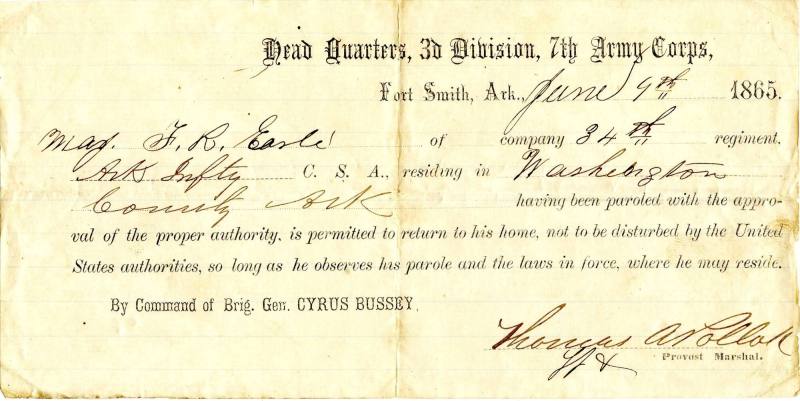 Head Quarters, 3d Division, 7th Army Corps,
Fort Smith, Ark., June 9th 1865.
Maj. F. R. Earle of company 34th regiment.
Ark Infty C. S. A., residing in Washington
County Ark having been paroled with the appro-
val of the proper authority, is permitted to return to his home, not to be disturbed by the United
States authorities, so long as he observes his parole and the laws in force, where he may reside.
By Command of Brig. Gen. CYRUS BUSSEY,
Thomas A Pollok
Provost Marshal.